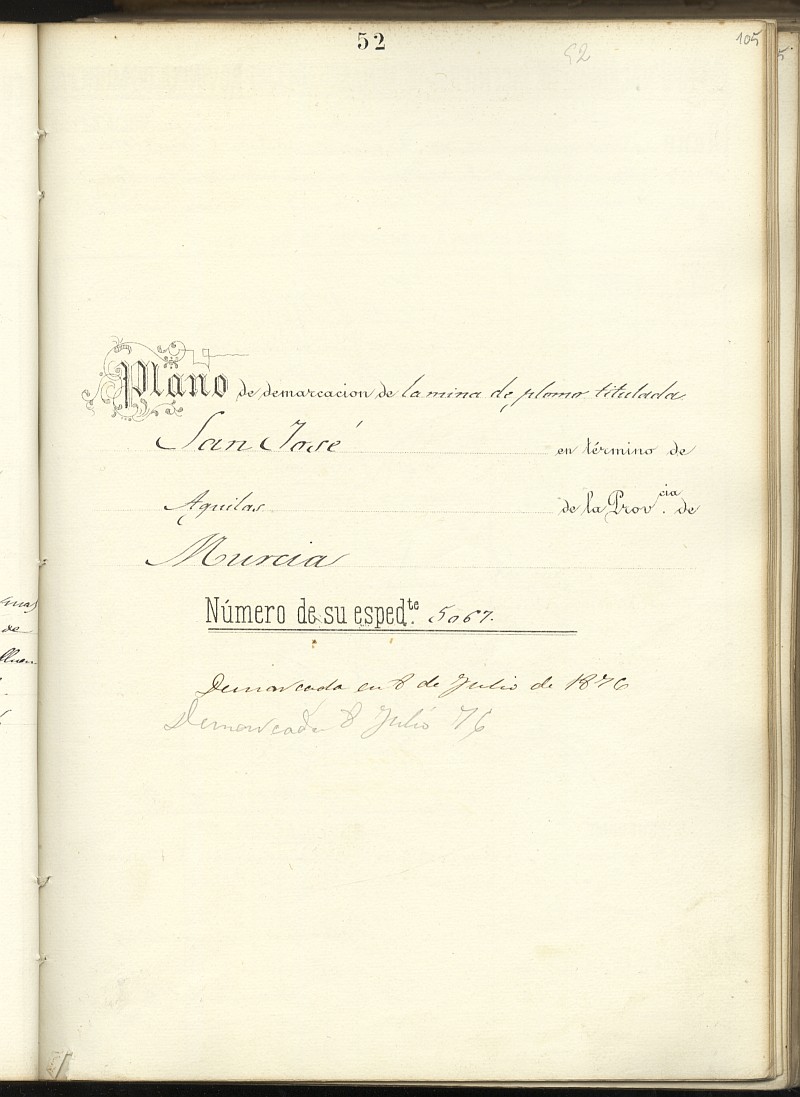 52
52
105
Plano de demarcacion de la mina de plomo titulada
San José en término de
Aguilas de la Prov.cia de
Murcia
Número de su esped.te 5067.
Demarcada en 8 de Julio de 1876
Demarcada 8 Julio 76
de